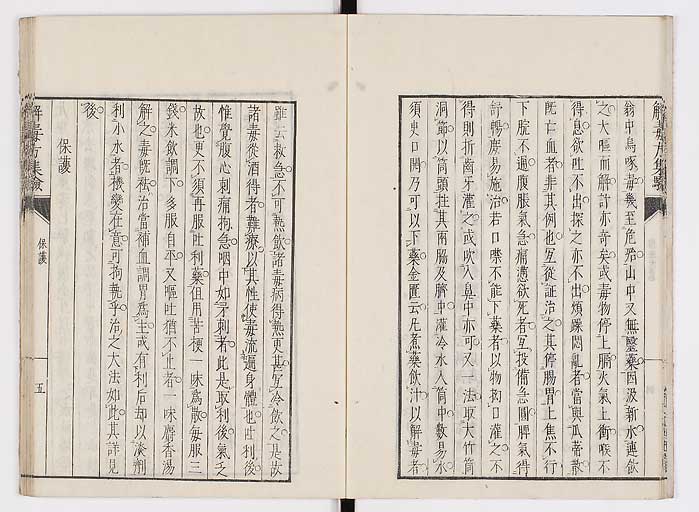 翁中烏喙毒幾至危殆山中又無毉藥因汲新水連飲
之大嘔而解計亦奇矣或毒物停上膈火氣上衝喉不
得息欲吐不出探之亦不出煩躁悶亂者當與瓜蔕散
既亡血者非其例也宜從証治之其停腸胃上焦不行
下脘不通腹脹氣急痛懣欲死者宜投備急圓脾氣得
舒暢庶易施治若口噤不能下藥者以物拘口灌之不
得則折齒牙灌之或吹入鼻中亦可又一法取大竹筒
洞節以筒頭拄其兩脇及臍中灌冷水入筒中數易水
須臾口開乃可以下藥金匱云凡煮藥飲汁以解毒者
雖云救急不可熱飲諸毒病得熱更甚宜冷飲之是故
諸毒從酒得者難療以其性使毒流遍身體也吐利後
惟覺腹心刺痛拘急咽中如矛刺者此是取利後氣乏
故也更不須再服吐利藥但用苦梗一味爲散毎服三
錢米飲調下多服自平又嘔吐猶不止者一味麝香湯
解之毒既祛治當補血調胃爲主或有利后却以淡劑
利小水者機變在意可拘執乎治之大法如此其詳見
後
保護
解毒方集驗
保護
五